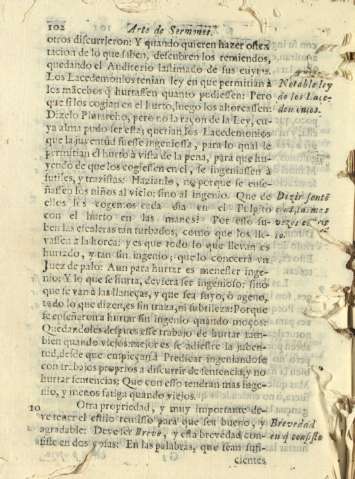 102 Arte de Sermones.
otros discurrieron: Y quando quieren hazer oste
tacion de lo que saben, descubren los remiendos,
quedando el Auditorio lastimado de sus
Los Lacedemonios tenian ley en que permitian à
los mācebos q̃ hurtassen quanto pudiessen: Pero
que si los cogian en el hurto, luego los ahorcassen:
Dizelo Plutarcho, pero no la raçon de la Ley, cu-
ya alma pudo ser esta; querian los Lacedemonios
que la juventud fuesse ingeniosa, para lo qual le
permitian el hurto à vista de la pena, para que hu-
yendo de que los cogiessen en el, se ingeniassen à
sutiles, y
Hazianlo, no porque se ense-
ñassen los niños al vicio, sino al ingenio. Que de
ellos les cogemos cada dia en el Pulpito
con el hurto en las manos? Por esso su-
ben las escaleras tan turbados, como que los lle-
vassen a la horca: y es que todo lo que llevan es
hurtado, y tan sin ingenio, que lo conocerà vn
Juez de palo: Aun para hurtar es menester inge-
nio; Y lo que se hurta, deviera ser ingenioso; sino
que se van à las llaneças, y que sea suyo, ò ageno,
todo lo que dizen, es sin traza, ni subtileza: Porque
se enseñaron a hurtar sin ingenio quando moços:
Quedandoles despues esse trabajo de hurtar tam-
bien quando viejos: mejor es se adiestre la juben-
tud, desde que empieçan à Predicar ingeniandose
con trabajos proprios a discurrir de sentencia, y no
hurtar sentencias; Que con esso tendran mas inge-
nio, y menos fatiga quando viejos.
10 Otra propriedad, y muy importante de-
ve tener el estilo remisso para que sea bueno, y
agradable: Deve ser Breve, y esta brevedad con-
siste en dos cosas: En las palabras, que sean sufi-
cientes
Notable ley
de los Lace-
demonios.
Dezir
Brevedad
en q̃ consiste